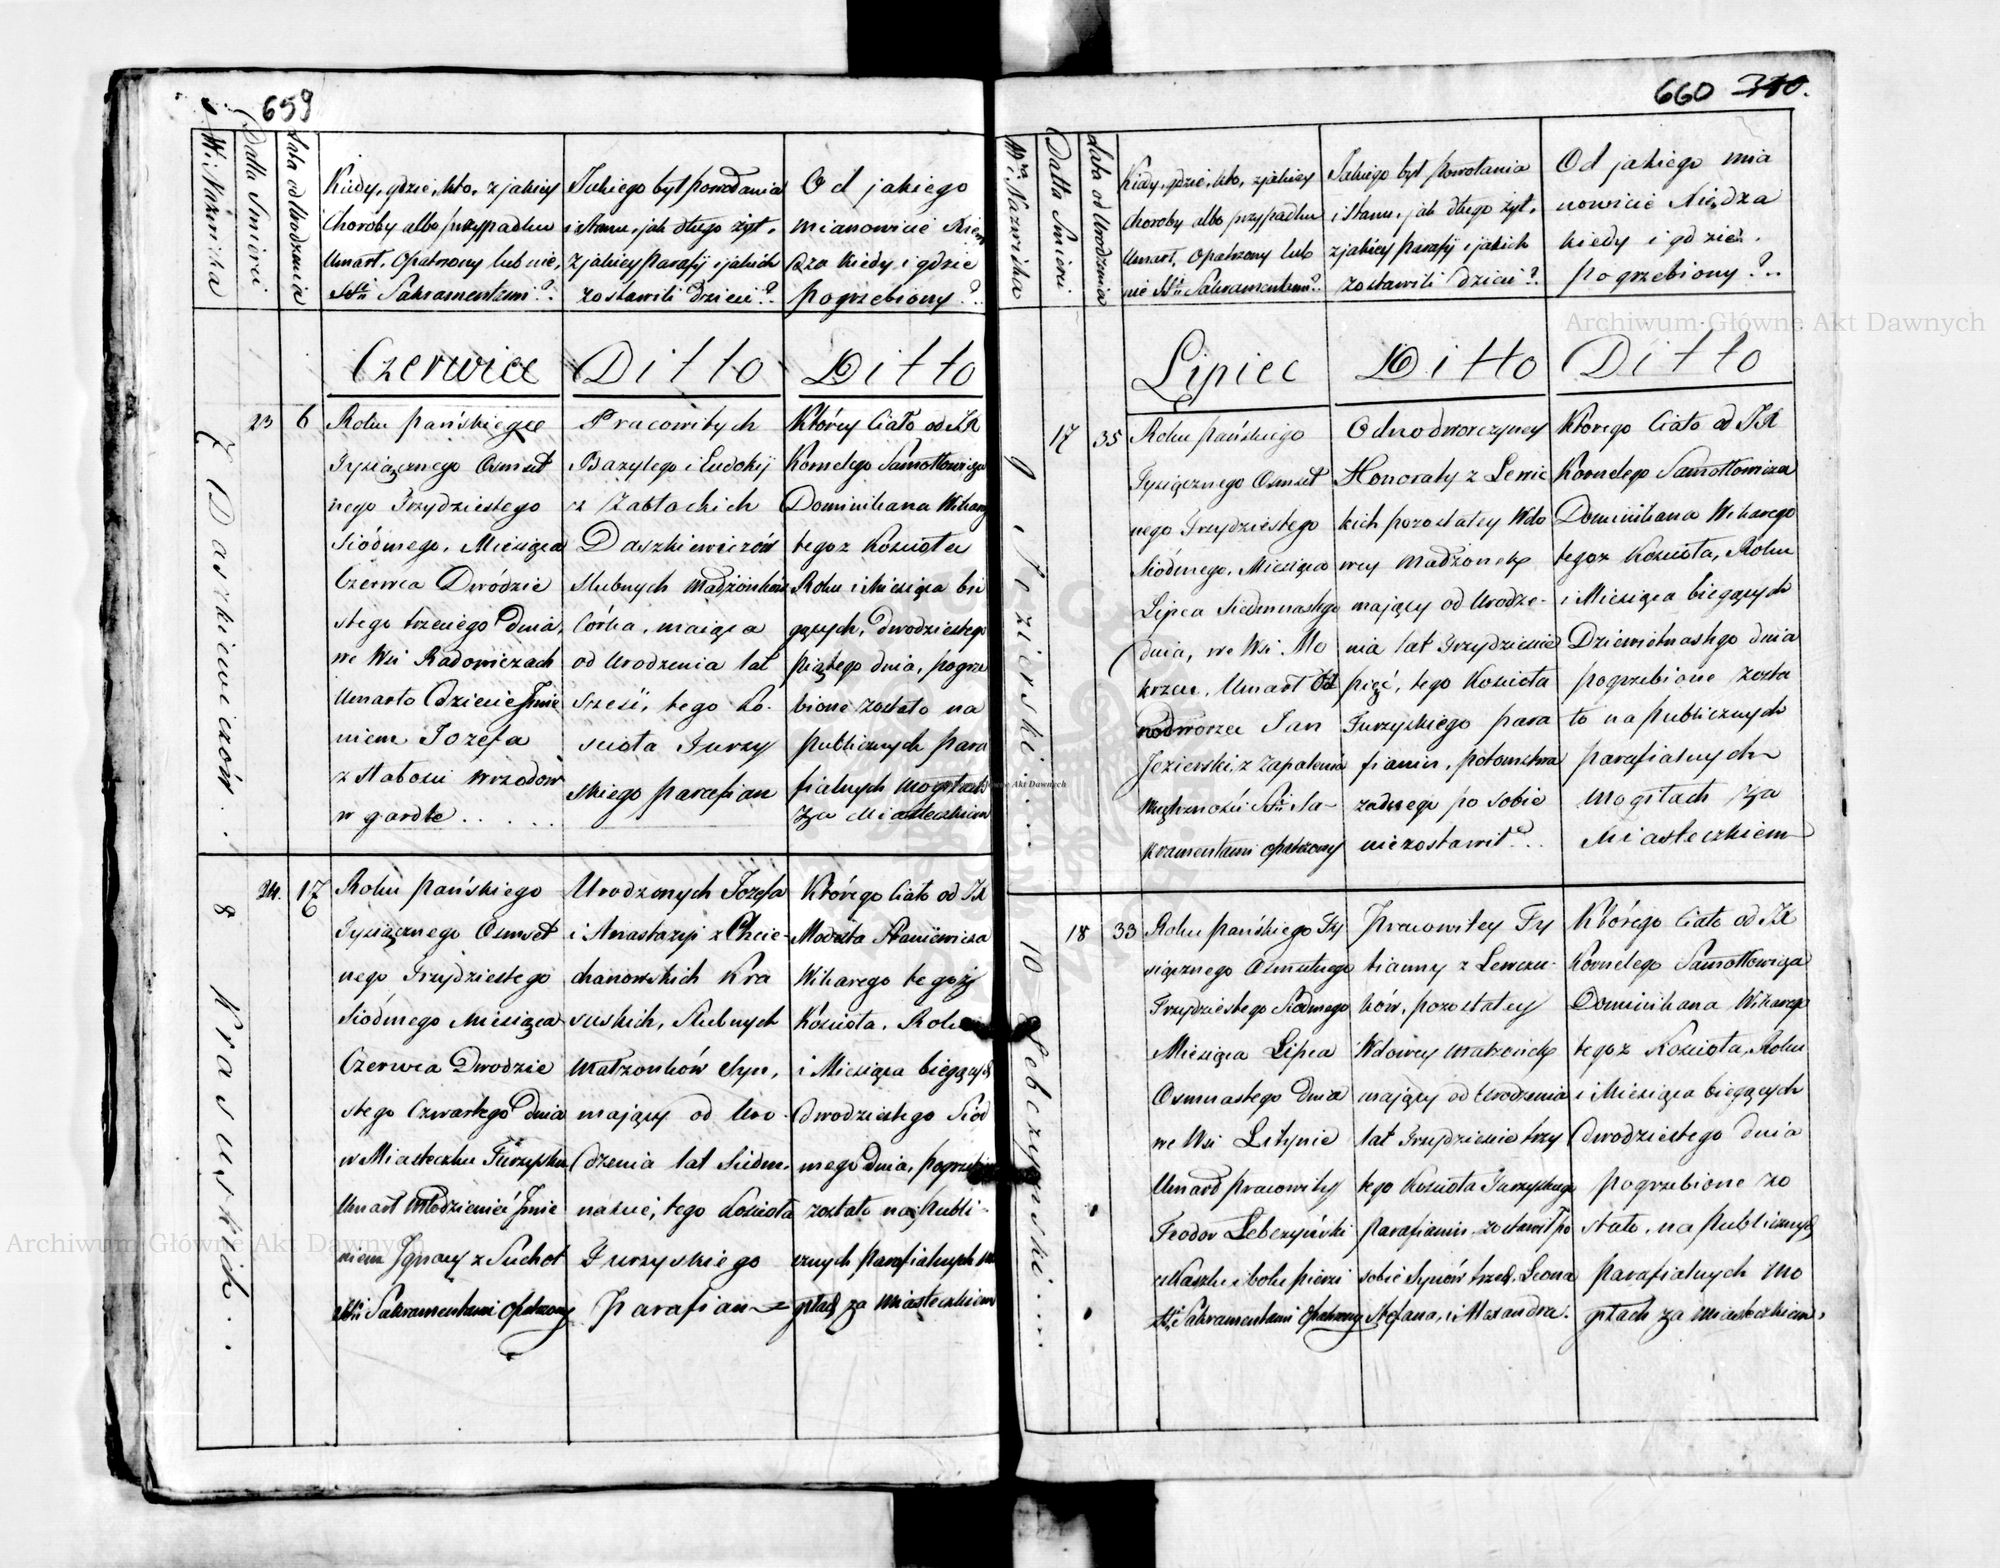 659
Nr i Nazwiska
Datta Smierci
Lata od Urodzenia
Kiedy, gdzie, kto, z jakiey
Choroby albo przypadku
Umarł, Opatrzony lub nie,
SSti Sakramentami?.
Jakiego był powołania
i stanu, jak długo żył,
z jakiey Parafij i jakich
zostawili Dzieci?.
Od jakiego
mianowicie Xię
dza kiedy i gdzie
pogrzebiony?..
Czerwiec
Ditto
Ditto
7 Daszkiewiczów.
23
6
Roku Pańskiego
Tysiącznego Osmset
nego Trzydziestego
Siódmego, Miesiąca
Czerwca Dwódzie
stego trzeciego Dnia,
we Wsi Radowiczach
Umarło Dziecie Jmie
niem Jozefa
z słabosci wrzodów
w gardle.....
Pracowitych
Bazylego i Eudokij
z Zabłockich
Daszkiewiczów
Slubnych Madżonków
Córka, maiąca
od Urodzenia lat
Sześć, tego Ko-
scioła Turzy
skiego parafian
Którey Ciało od JX
Kornelego Samotłowicza
Dominikana Wikarego
tegoz Kościoła
Roku i Miesiąca bie
gących, dwodziestego
piątego dnia, pogrze
bione zostało na
publicznych para
fialnych mogiłach
za Miasteczkiem
8 Krasuskich..
24.
17
Roku Pańskiego
Tysiącznego Osmset
nego Trzydziestego
Siódmego Miesiąca
Czerwca Dwodzie
stego Czwartego Dnia
w Miasteczku Turzysku
Umarł Młodzienieć Jmie
niem Jgnacy z Suchot
SSti Sakramentami Opatrzony
Urodzonych Jozefa
i Anastazyi z Chcie-
chanowskich Kra
suskich, Slubnych
Małżonków Syn,
mający od Uro-
dzenia lat Siedm-
nascie, tego Kościoła
Turzyskiego
Parafian
Którego Ciało od JX
Modesta Staniewicza
Wikarego tegoż
Kościoła, Roku
i Miesiąca bieżących
Dwodziestego Siód
mego Dnia, pogrzebione
zostało na Publi-
cznych parafialnych mo
giłach za Miasteczkiem
660 310.
Nr i Nazwiska
Datta Smierci
Lata od Urodzenia
Kiedy, gdzie, kto, z jakiey
Choroby albo przypadku
Umarł, Opatrzony lub
nie SSti Sakramentami?.
Jakiego był Powołania
i stanu, jak długo żył,
z jakiey Parafij i jakich
zostawili Dzieci?.
Od jakiego mia
nowicie Xiędza
kiedy i gdzie.
pogrzebiony?..
Archiwum Główne Akt Dawnych
Lipiec
Ditto
Ditto
9. Jezierski....
17
35
Roku Pańskiego
Tysiącznego Osmset
nego Trzydziestego
Siódmego, Miesiąca
Lipca Siedmnastego
dnia, we Wsi Mo
krzcu, Umarł Od
nodworzec Jan
Jezierski, z zapalenia
wnętrznosci SSti Sa-
kramentami opatrzony
Odnodworczyney
Honoraty z Lewic
kich pozostałey Wdo
wey Madżonek
mający od Urodze-
nia lat Trzydziescie
pięć, tego Kościoła
Turzyskiego para
fianin, potomstwa
żadnego po sobie
niezostawił?..
Ktorego Ciało od JX
Kornelego Samotłowicza
Dominikana Wikarego
tegoz Kościoła, Roku
i Miesiąca bieżących
Dziewietnastego dnia
pogrzebione zosta
ło na publicznych
parafialnych
mogiłach za
Miasteczkiem
10 Lebczynski....
18
33
Roku Pańskiego Ty
siącznego Osmsetnego
Trzydziestego Siódmego
Miesiąca Lipca
Osmnastego Dnia
we Wsi Litynie
Umarł pracowity
Teodor Lebczyński
z Kaszlu i bolu piersi
SSti Sakramentami Opatrzony
Pracowitey Ty
tianny z Lewczu-
ków, pozostałey
Wdowey Małżonek
mający od Urodzenia
lat Trzydziescie trzy
tego Kościoła Turzyskiego
parafianin, zostawił po
sobie Synów trzech, Leona
Stefana, i Alexandra.
Którego Ciało od JX
Kornelego Samotłowicza
Dominikana Wikarego
tegoz Kościoła, Roku
i Miesiąca bieżących
dwodziestego dnia
pogrzebione zo
stało, na publicznych
parafialnych mo
giłach za miasteczkiem,
Archiwum Główne Akt Dawnych